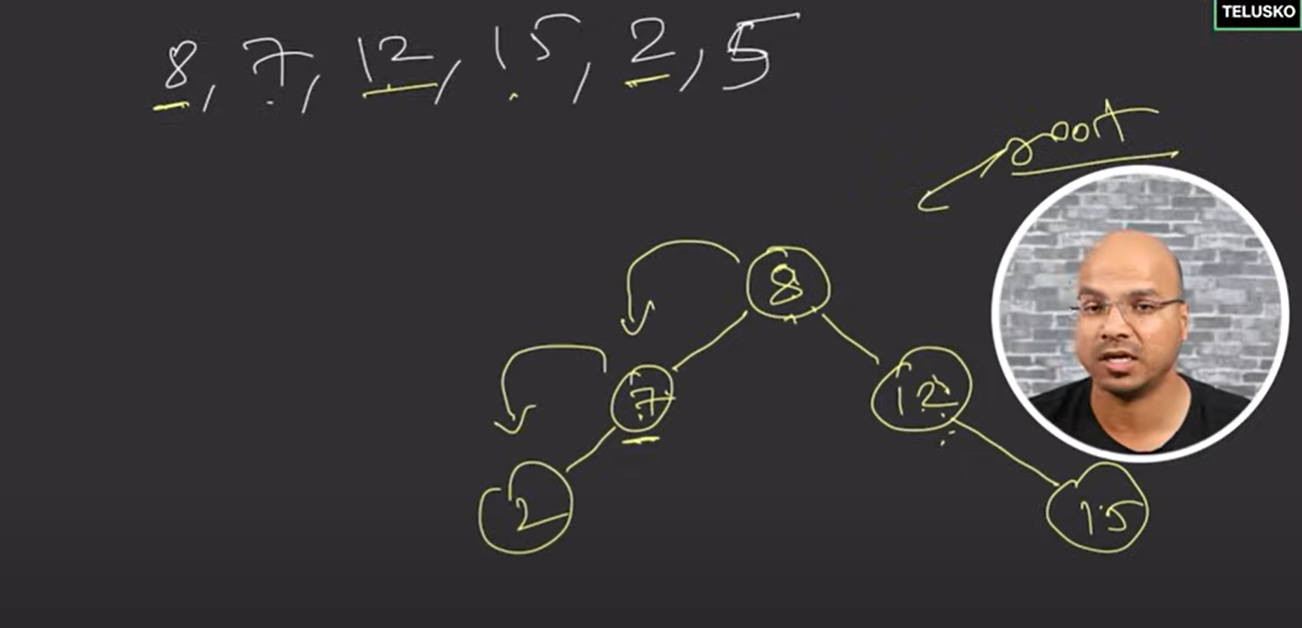 TELUSKO
8, 7, 12, 15, 2, 5
root
8
7
12
2
15